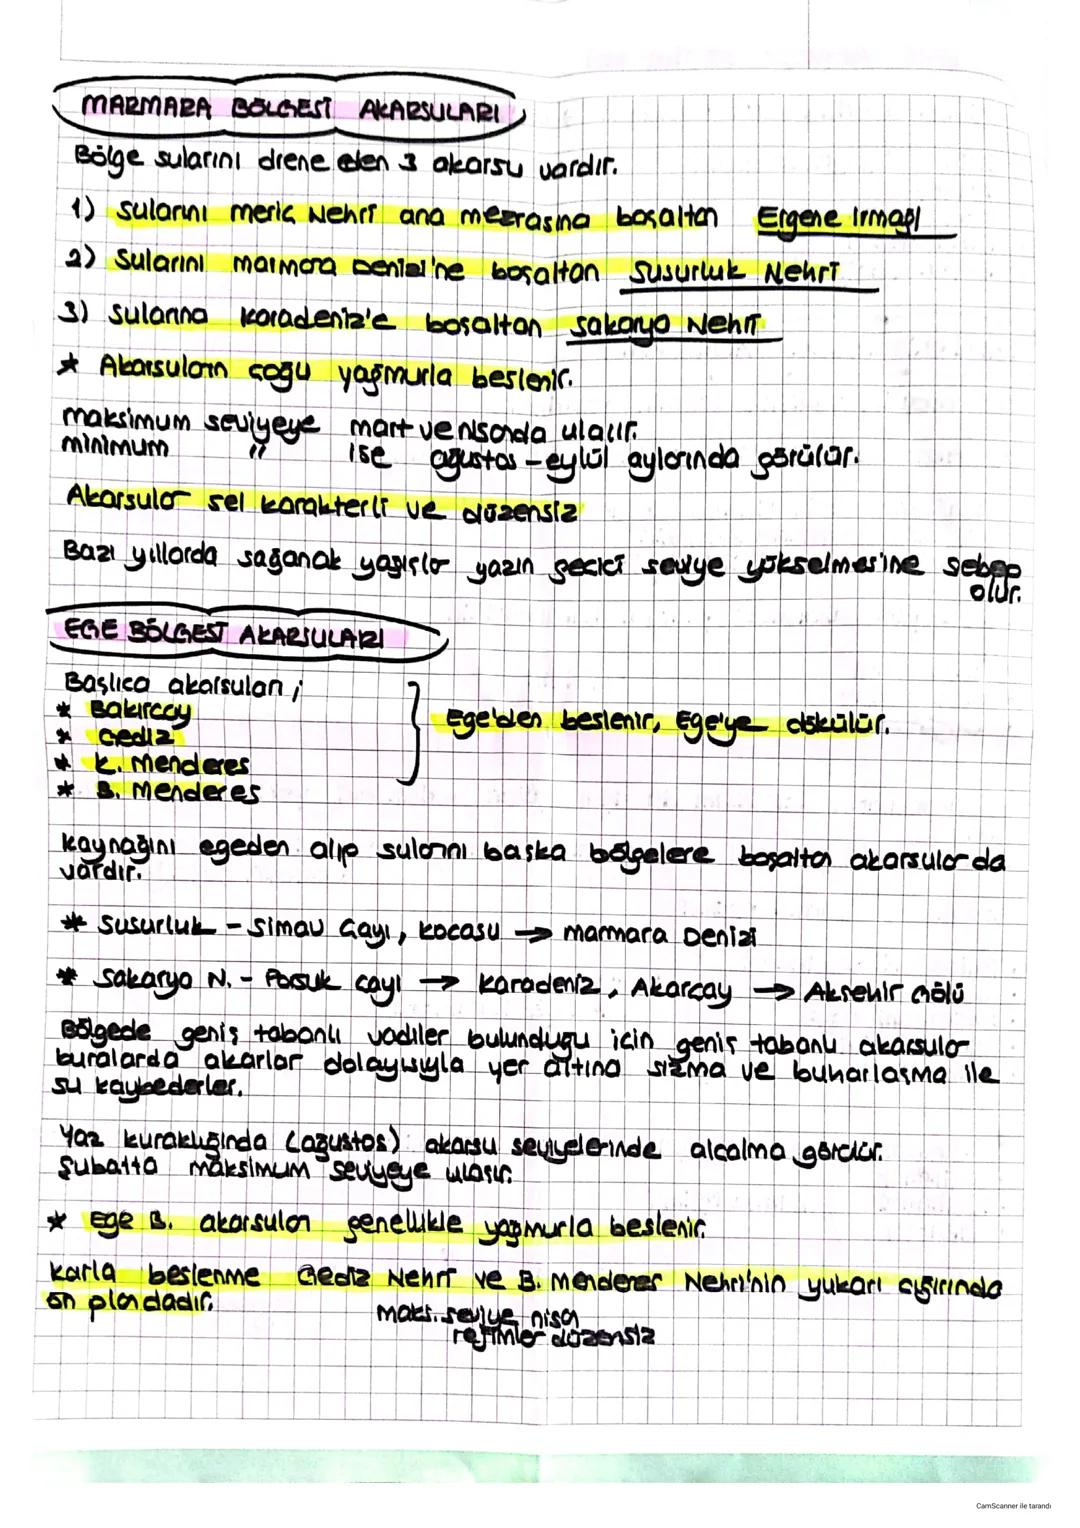 MARMARA BÖLGESİ AKARSULARI
Bölge sularını drene eden 3 akarsu vardır.
1) Sularını meriç Nehri ana mezrasına boşaltan Ergene Irmağı
2) Sularını marmara Denizi'ne boşaltan Susurluk Nehri
3) Sularına Karadeniz'e boşaltan Sakarya Nehri
* Akarsuların çoğu yağmurla beslenir.
maksimum seviyeye mart ve nisanda ulaşır.
minimum " ise ağustos - eylül aylarında görülür.
Akarsular sel karakterli ve düzensiz
Bazı yıllarda sağanak yağışlar yazın geçici seviye yükselmes'ine sebep
olur.
EGE BÖLGESİ AKARSULARI
Başlıca akarsuları ;
* Bakırçay
* Gediz
* K. Menderes
* B. Menderes
Ege'den beslenir, Ege'ye dökülür.
Kaynağını egeden alıp sularını başka bölgelere boşaltan akarsular da
vardır.
* Susurluk - Simav Çayı, Kocasu → marmara Denizi
* Sakarya N. - Porsuk çayı → Karadeniz, Akarçay → Akşehir Gölü
Bölgede geniş tabanlı vadiler bulunduğu için geniş tabanlı akarsular
buralarda akarlar dolayısıyla yer altına sızma ve buharlaşma ile
su kaybederler.
Yaz kuraklığında (ağustos) akarsu seviyelerinde alçalma görülür.
Şubatta maksimum seviyeye ulaşır.
* Ege B. akarsuları genellikle yağmurla beslenir.
Karla beslenme Gediz Nehri ve B. menderes Nehri'nin yukarı çığırında
ön plandadır.
maks. seviye nisan
rejimler düzensiz
CamScanner ile tarandı